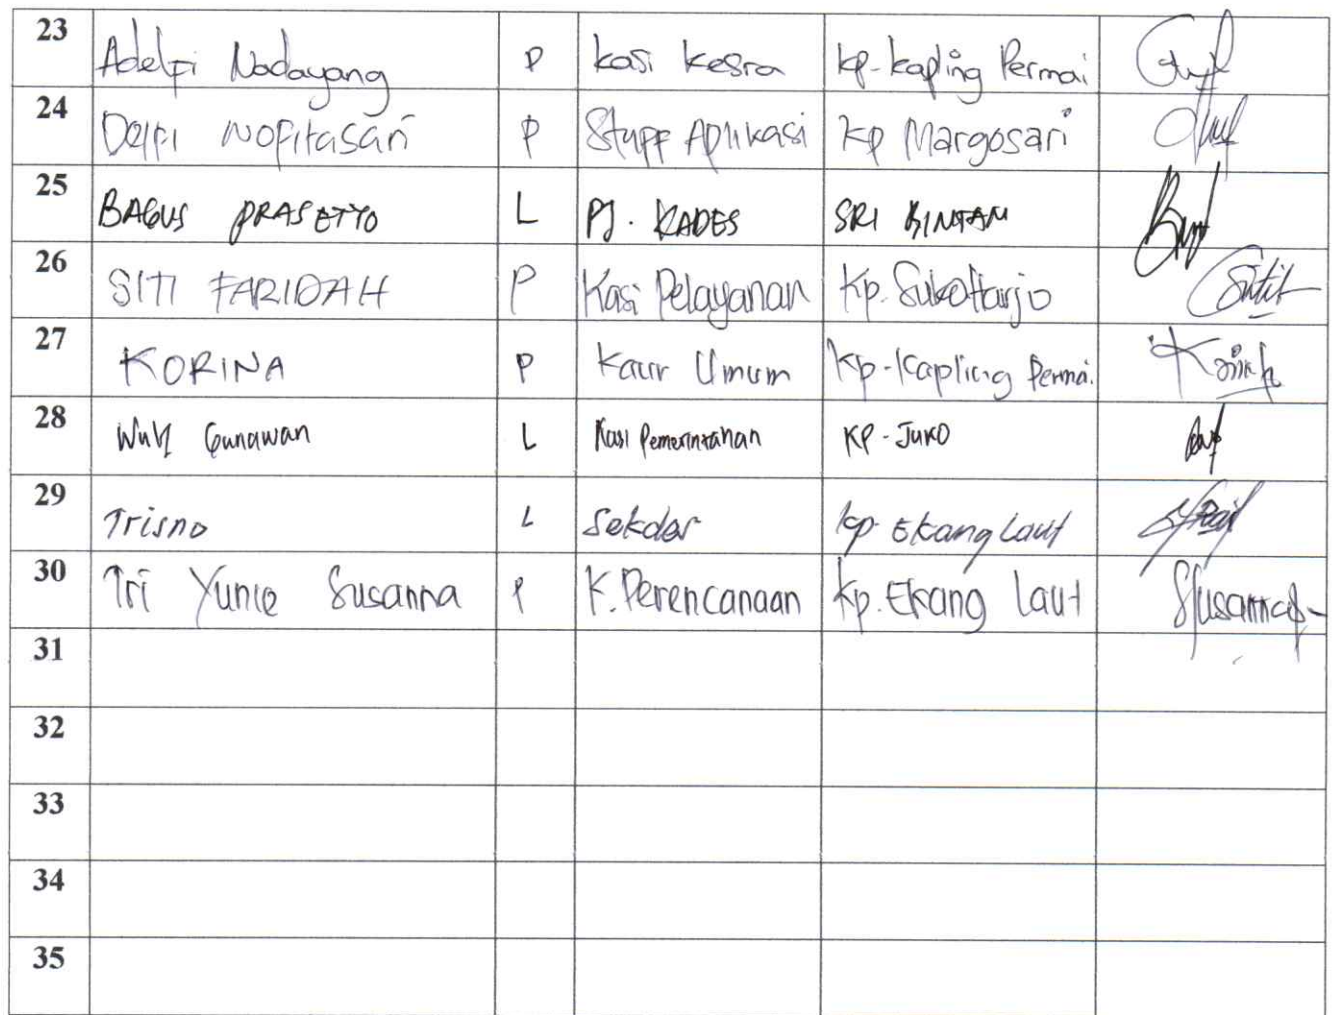 23 Adelpi Nadayang P kasi kesra kp-kapling Permai
24 Delpi Nofitasari P Stapf Aplikasi kp Margosari
25 BAGUS PRASETYO L PJ. KADES SRI BINTAN
26 SITI FARIDAH P Kasi Pelayanan Kp. SukoHarjo
27 KORINA P Kaur Umum Kp-Kapling Permai.
28 Gunawan L Kasi Pemerintahan KP-JUKO
29 Trisno L Sekdes kp. Ekang Laut
30 Tri Yunie Susanna P K. Perencanaan Kp. Ekang Laut Susanna
31
32
33
34
35